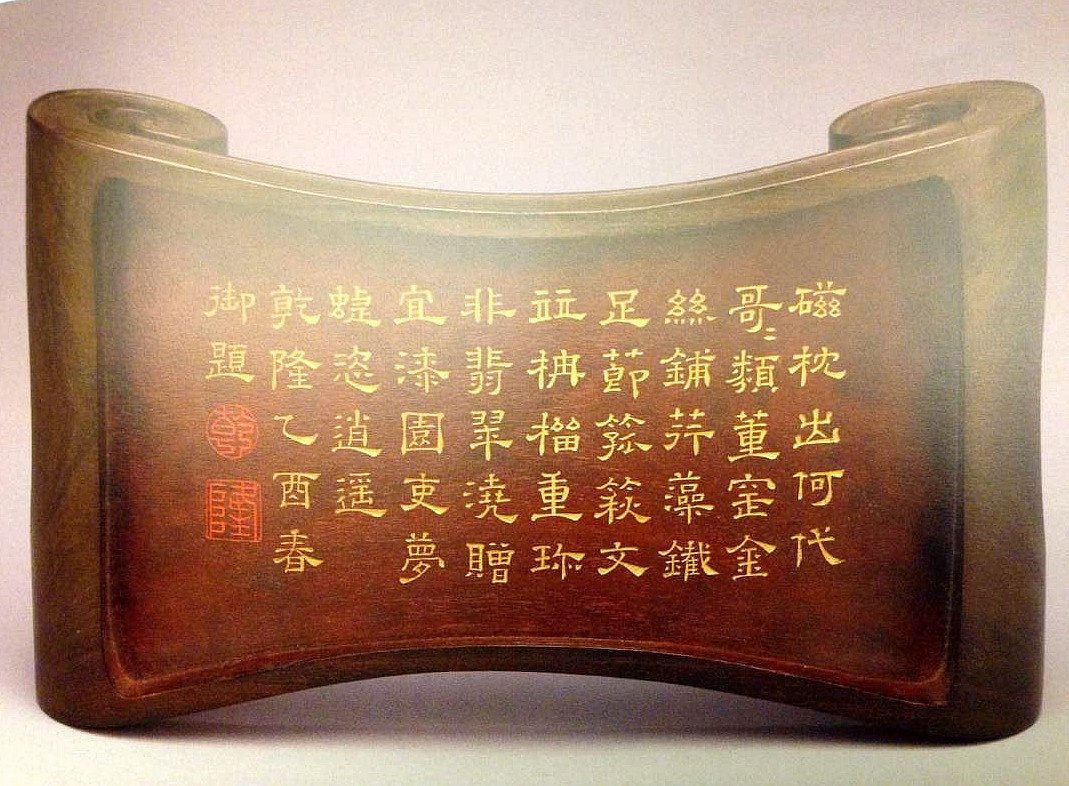 磁枕出何代
哥〻類董窯金
絲鋪荇藻鐵
足莭箛篍文
竝枏榴重珍
非翡翠澆贈
宜漆園吏夢
蜨恣逍遥
乾隆乙酉春
御題
乾
隆